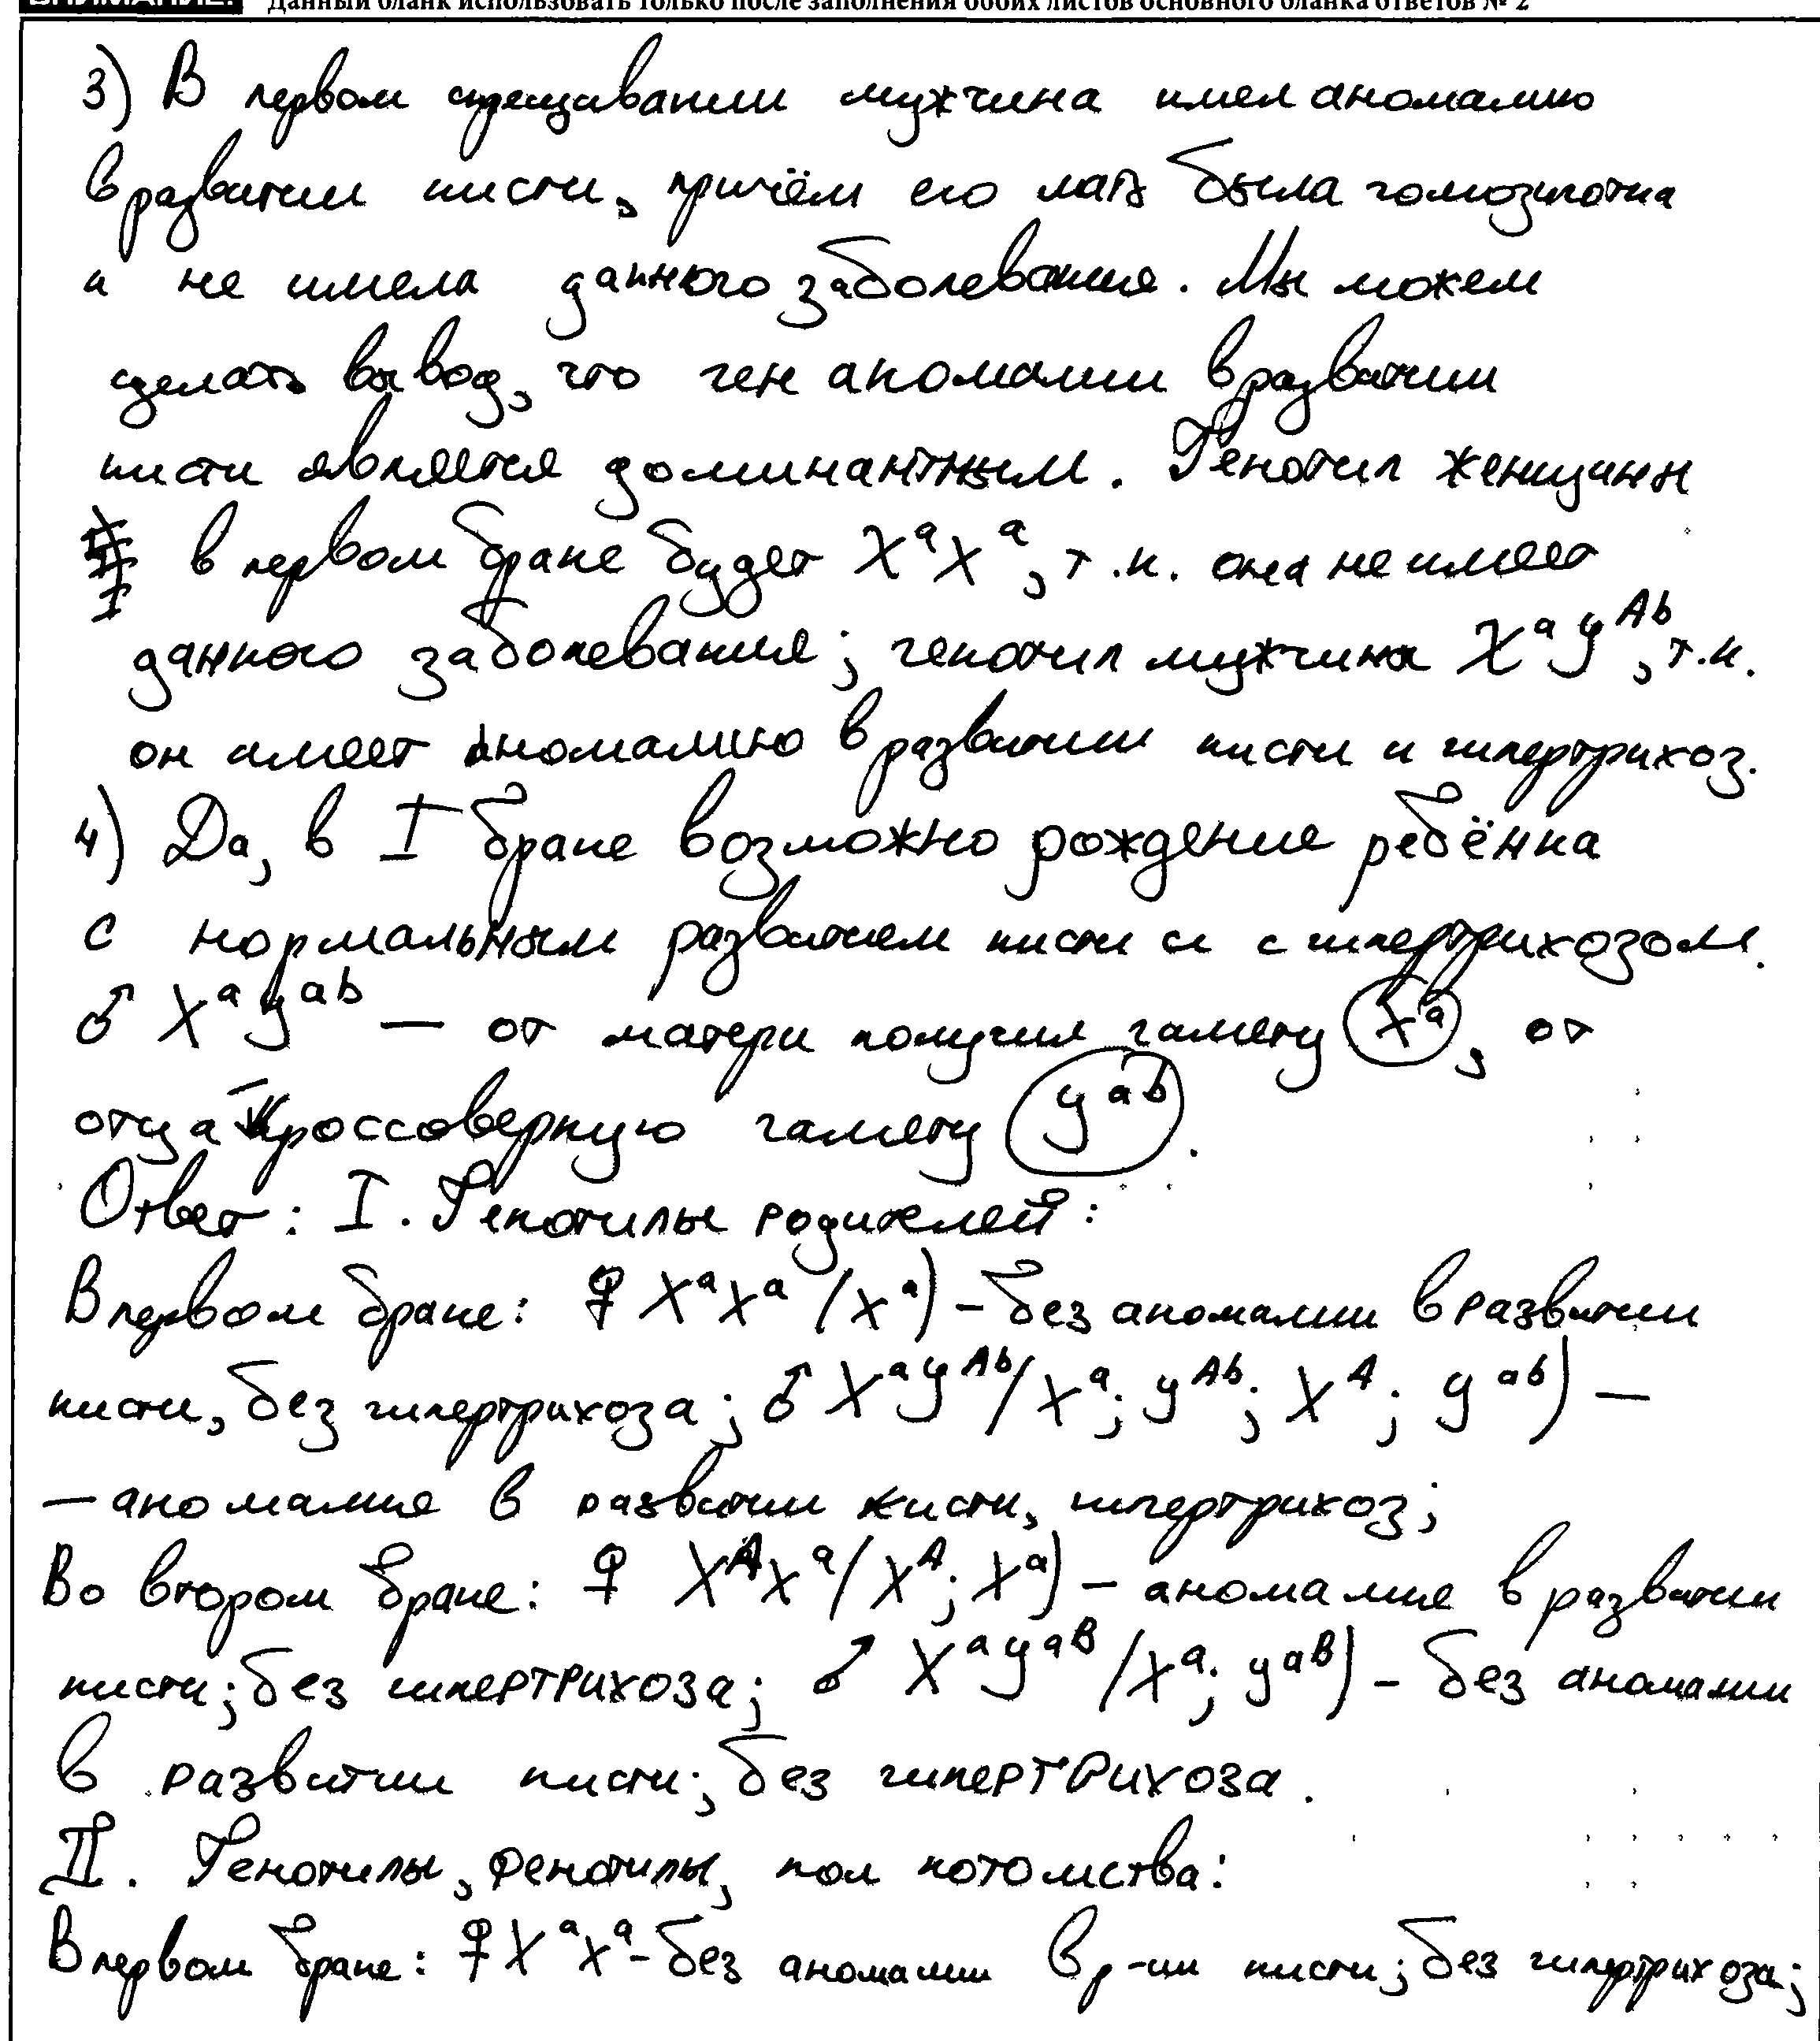 ВНИМАНИЕ! Данный бланк использовать только после заполнения обоих листов основного бланка ответов № 2
3) В первом скрещивании мужчина имел аномалию
в развитии кисти, причём его мать была гомозиготна
и не имела данного заболевания. Мы можем
сделать вывод, что ген аномалии в развитии
кисти является доминантным. Генотип женщины
в первом браке будет XᵃXᵃ, т.к. она не имеет
данного заболевания; генотип мужчины XᵃYᴬᵇ, т.к.
он имеет аномалию в развитии кисти и гипертрихоз.
4) Да, в I браке возможно рождение ребёнка
с нормальным развитием кисти и с гипертрихозом.
♂ XᵃYᵃᵇ — от матери получил гамету Xᵃ, от
отца – кроссоверную гамету Yᵃᵇ.
Ответ: I. Генотипы родителей:
В первом браке: ♀ XᵃXᵃ (Xᵃ) – без аномалии в развитии
кисти, без гипертрихоза; ♂ XᵃYᴬᵇ (Xᵃ; Yᴬᵇ; Xᴬ; Yᵃᵇ) —
— аномалия в развитии кисти, гипертрихоз;
Во втором браке: ♀ XᴬXᵃ (Xᴬ; Xᵃ) – аномалия в развитии
кисти; без гипертрихоза; ♂ XᵃYᵃᴮ (Xᵃ; Yᵃᴮ) – без аномалии
в развитии кисти; без гипертрихоза.
II. Генотипы, фенотипы, пол потомства:
В первом браке: ♀ XᵃXᵃ – без аномалии в р-ии кисти; без гипертрихоза;